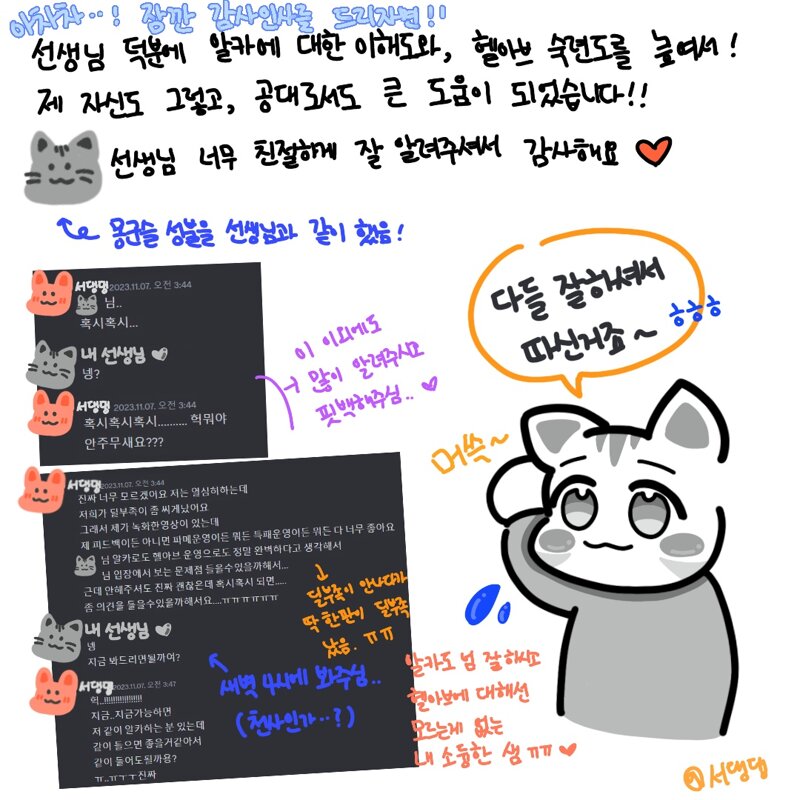 아차차..! 잠깐 감사인사를 드리자면!!
선생님 덕분에 알카에 대한 이해도와, 헬아브 숙련도를 높여서!
제 자신도 그렇고, 공대로서도 큰 도움이 되었습니다!!
선생님 너무 친절하게 잘 알려주셔서 감사해요
몽군슬 성불을 선생님과 같이 했음!
서댕댕 2023.11.07. 오전 3:44
님..
혹시혹시...
내 선생님
넹?
서댕댕 2023.11.07. 오전 3:44
혹시혹시혹시.......... 헉뭐야
안주무새요???
이 이외에도
많이 알려주시고
핏백해주심..
다들 잘하셔서
따신거죠~
ㅎㅎㅎ
머쓱~
서댕댕 2023.11.07. 오전 3:44
진짜 너무 모르겠어요 저는 열심히하는데
저희가 딜부족이 좀 씨게났어요
그래서 제가 녹화한영상이 있는데
제 피드백이든 아니면 파메운영이든 뭐든 특패운영이든 뭐든 다 너무 좋아요
님 알카로도 헬아브 운영으로도 정말 완벽하다고 생각해서
님 입장에서 보는 문제점 들을수있을까해서...
근데 안해주셔도 진짜 괜찮은데 혹시혹시 되면.....
좀 의견을 들을수있을까해서요....ㅠㅠㅠㅠㅠㅠ
딜부족이 안나다가
딱 한판이 딜부족
났음. ㅠㅠ
내 선생님
넹
지금 봐드리면될까여?
새벽 4시에 봐주심..
(천사인가..?)
서댕댕 2023.11.07. 오전 3:47
헉..!!!!!!!!!!!!!!!!!
지금..지금가능하면
저 같이 알카하는 분 있는데
같이 들으면 좋을거같아서
같이 들어도될까용?
ㅠ..ㅠㅜㅜ진짜
알카도 넘 잘하시고
헬아브에 대해선
모르는게 없는
내 소듕한 샘 ㅠㅠ
서댕댕